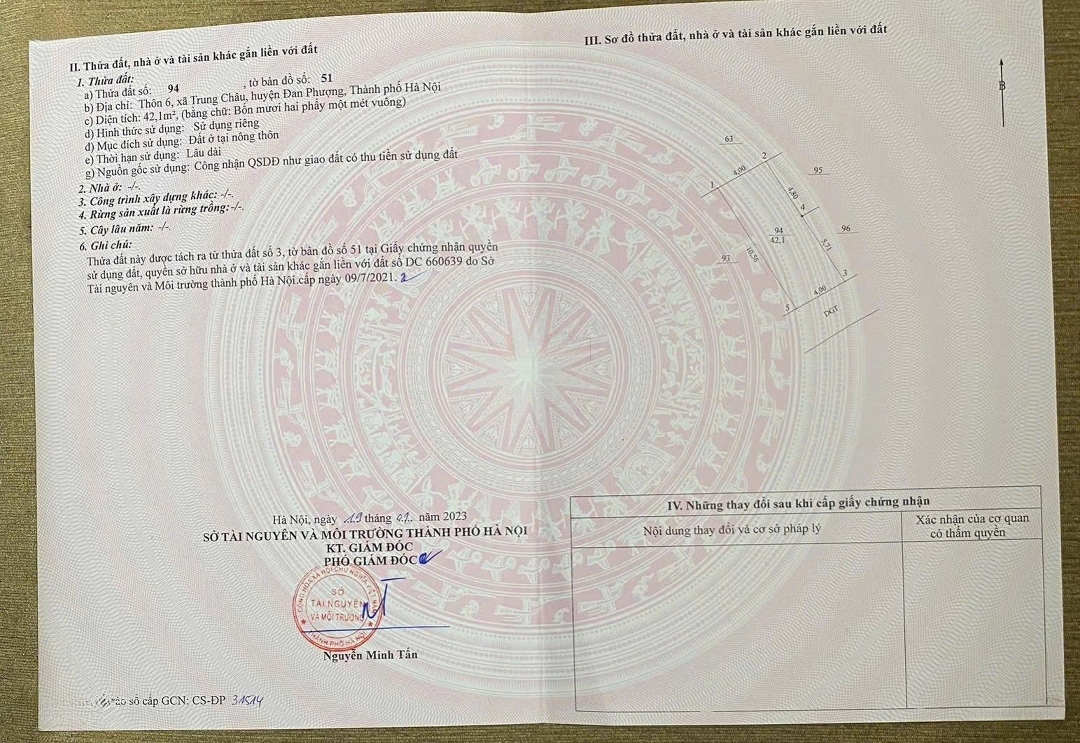 II. Thửa đất, nhà ở và tài sản khác gắn liền với đất
1. Thửa đất:
a) Thửa đất số: 94 , tờ bản đồ số: 51
b) Địa chỉ: Thôn 6, xã Trung Châu, huyện Đan Phượng, Thành phố Hà Nội
c) Diện tích: 42,1m², (bằng chữ: Bốn mươi hai phẩy một mét vuông)
d) Hình thức sử dụng: Sử dụng riêng
đ) Mục đích sử dụng: Đất ở tại nông thôn
e) Thời hạn sử dụng: Lâu dài
g) Nguồn gốc sử dụng: Công nhận QSDĐ như giao đất có thu tiền sử dụng đất
2. Nhà ở: -/-.
3. Công trình xây dựng khác: -/-.
4. Rừng sản xuất là rừng trồng:-/-.
5. Cây lâu năm: -/-.
6. Ghi chú:
Thửa đất này được tách ra từ thửa đất số 3, tờ bản đồ số 51 tại Giấy chứng nhận quyền
sử dụng đất, quyền sở hữu nhà ở và tài sản khác gắn liền với đất số DC 660639 do Sở
Tài nguyên và Môi trường thành phố Hà Nội cấp ngày 09/7/2021.
Hà Nội, ngày 19 tháng 01 năm 2023
SỞ TÀI NGUYÊN VÀ MÔI TRƯỜNG THÀNH PHỐ HÀ NỘI
KT. GIÁM ĐỐC
PHÓ GIÁM ĐỐC
CỘNG HÒA XÃ HỘI CHỦ NGHĨA VIỆT NAM
SỞ
TÀI NGUYÊN
VÀ MÔI TRƯỜNG
THÀNH PHỐ HÀ NỘI
Nguyễn Minh Tấn
vào sổ cấp GCN: CS-ĐP 31514
III. Sơ đồ thửa đất, nhà ở và tài sản khác gắn liền với đất
B
63
2
4,00
95
1
4,80
4
94
42,1
96
5,71
10,56
93
3
4,00
5
DGT
IV. Những thay đổi sau khi cấp giấy chứng nhận
Nội dung thay đổi và cơ sở pháp lý
Xác nhận của cơ quan
có thẩm quyền